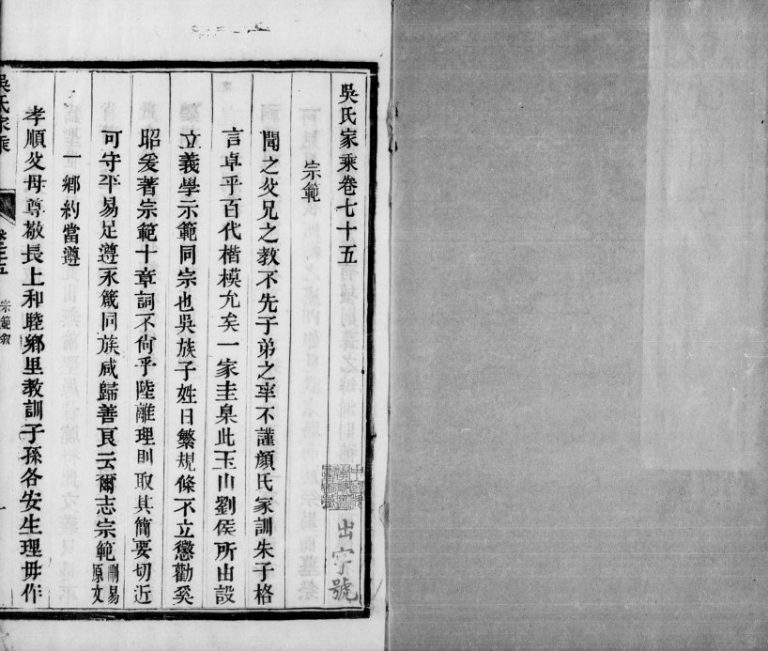 吳氏家乘卷七十五
出字號
宗範
聞之父兄之教不先子弟之率不謹顏氏家訓朱子格
言卓乎百代楷模允矣一家圭臬此玉山劉侯所由設
立義學示範同宗也吳族子姓日繁規條不立懲勸奚
昭爰著宗範十章詞不尚乎陸離理則取其簡要切近
可守平易足遵永箴同族咸歸善良云爾志宗範刪易原文
一鄉約當遵
孝順父母尊敬長上和睦鄉里教訓子孫各安生理毋作
吳氏家乘
卷七十五
宗範
一